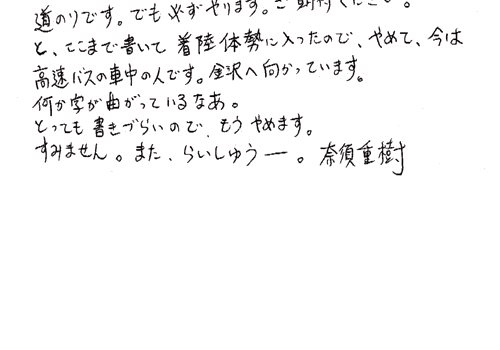 道のりです。でも必ずやります。ご期待ください。
と、ここまで書いて着陸体勢に入ったので、やめて、今は
高速バスの車中の人です。金沢へ向かっています。
何か字が曲がっているなあ。
とっても書きづらいので、もうやめます。
すみません。また、らいしゅうー。奈須重樹